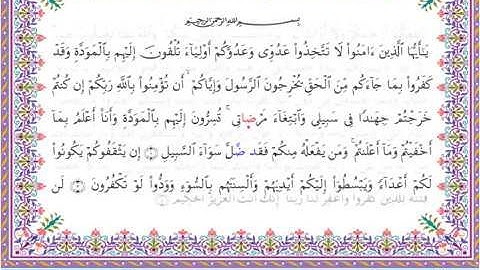 بسم الله الرحمن الرحيم
يَٰٓأَيُّهَا ٱلَّذِينَ ءَامَنُوا۟ لَا تَتَّخِذُوا۟ عَدُوِّى وَعَدُوَّكُمْ أَوْلِيَآءَ تُلْقُونَ إِلَيْهِم بِٱلْمَوَدَّةِ وَقَدْ
كَفَرُوا۟ بِمَا جَآءَكُم مِّنَ ٱلْحَقِّ يُخْرِجُونَ ٱلرَّسُولَ وَإِيَّاكُمْ ۙ أَن تُؤْمِنُوا۟ بِٱللَّهِ رَبِّكُمْ إِن كُنتُمْ
خَرَجْتُمْ جِهَٰدًا فِى سَبِيلِى وَٱبْتِغَآءَ مَرْضَاتِى ۚ تُسِرُّونَ إِلَيْهِم بِٱلْمَوَدَّةِ وَأَنَا۠ أَعْلَمُ بِمَآ
أَخْفَيْتُمْ وَمَآ أَعْلَنتُمْ ۚ وَمَن يَفْعَلْهُ مِنكُمْ فَقَدْ ضَلَّ سَوَآءَ ٱلسَّبِيلِ ۝ إِن يَثْقَفُوكُمْ يَكُونُوا۟
لَكُمْ أَعْدَآءً وَيَبْسُطُوٓا۟ إِلَيْكُمْ أَيْدِيَهُمْ وَأَلْسِنَتَهُم بِٱلسُّوٓءِ وَوَدُّوا۟ لَوْ تَكْفُرُونَ ۝ لَن
فتنة للذين كفروا واغفر لنا ربنا إنك أنت العزيز الحكيم